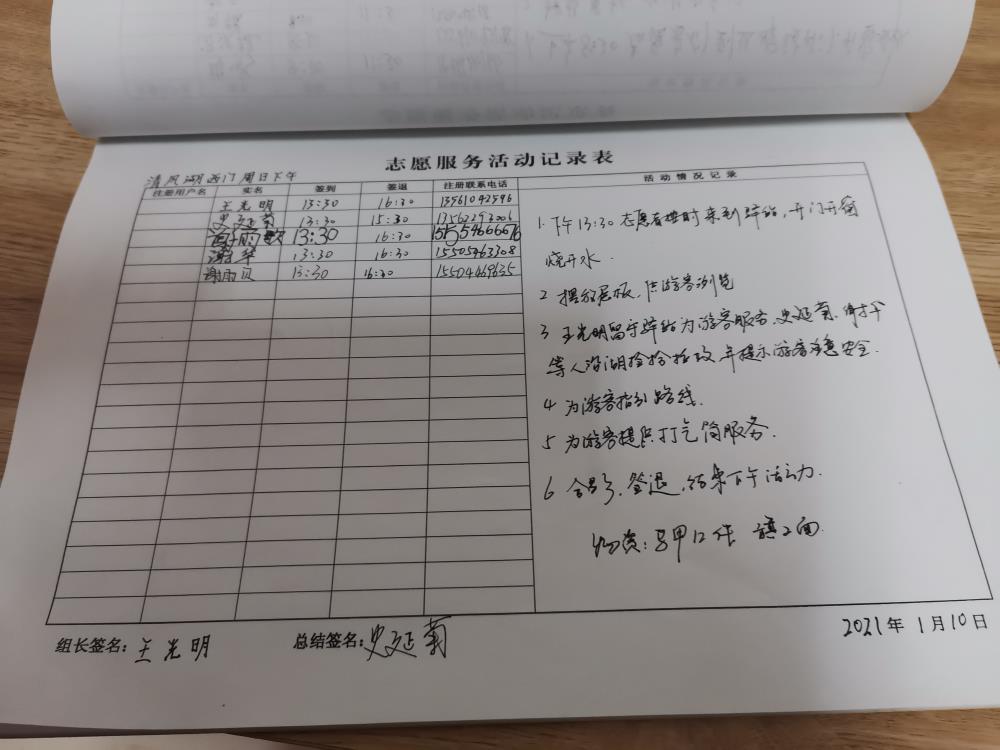 志愿服务活动记录表
清风湖西门 周日下午
注册用户名 实名 签到 签退 注册联系电话 活动情况记录
王光明 13:30 16:30 13961042596
史延菊 13:30 15:30 13562293006
13:30 16:30
谢华 13:30 16:30 15505463308
谢雨贝 13:30 16:30 15504469635
1. 下午13:30志愿者按时来到驿站,开门开窗
烧开水.
2 摆放展板,供游客浏览
3 王光明留守驿站为游客服务,史延菊
等人沿湖捡拾垃圾并提示游客注意安全.
4 为游客指引路线.
5 为游客提供打气筒服务.
6 合影,签退,结束下午活动.
物资:马甲12件 旗2面
组长签名:王光明 总结签名:史延菊 2021年1月10日